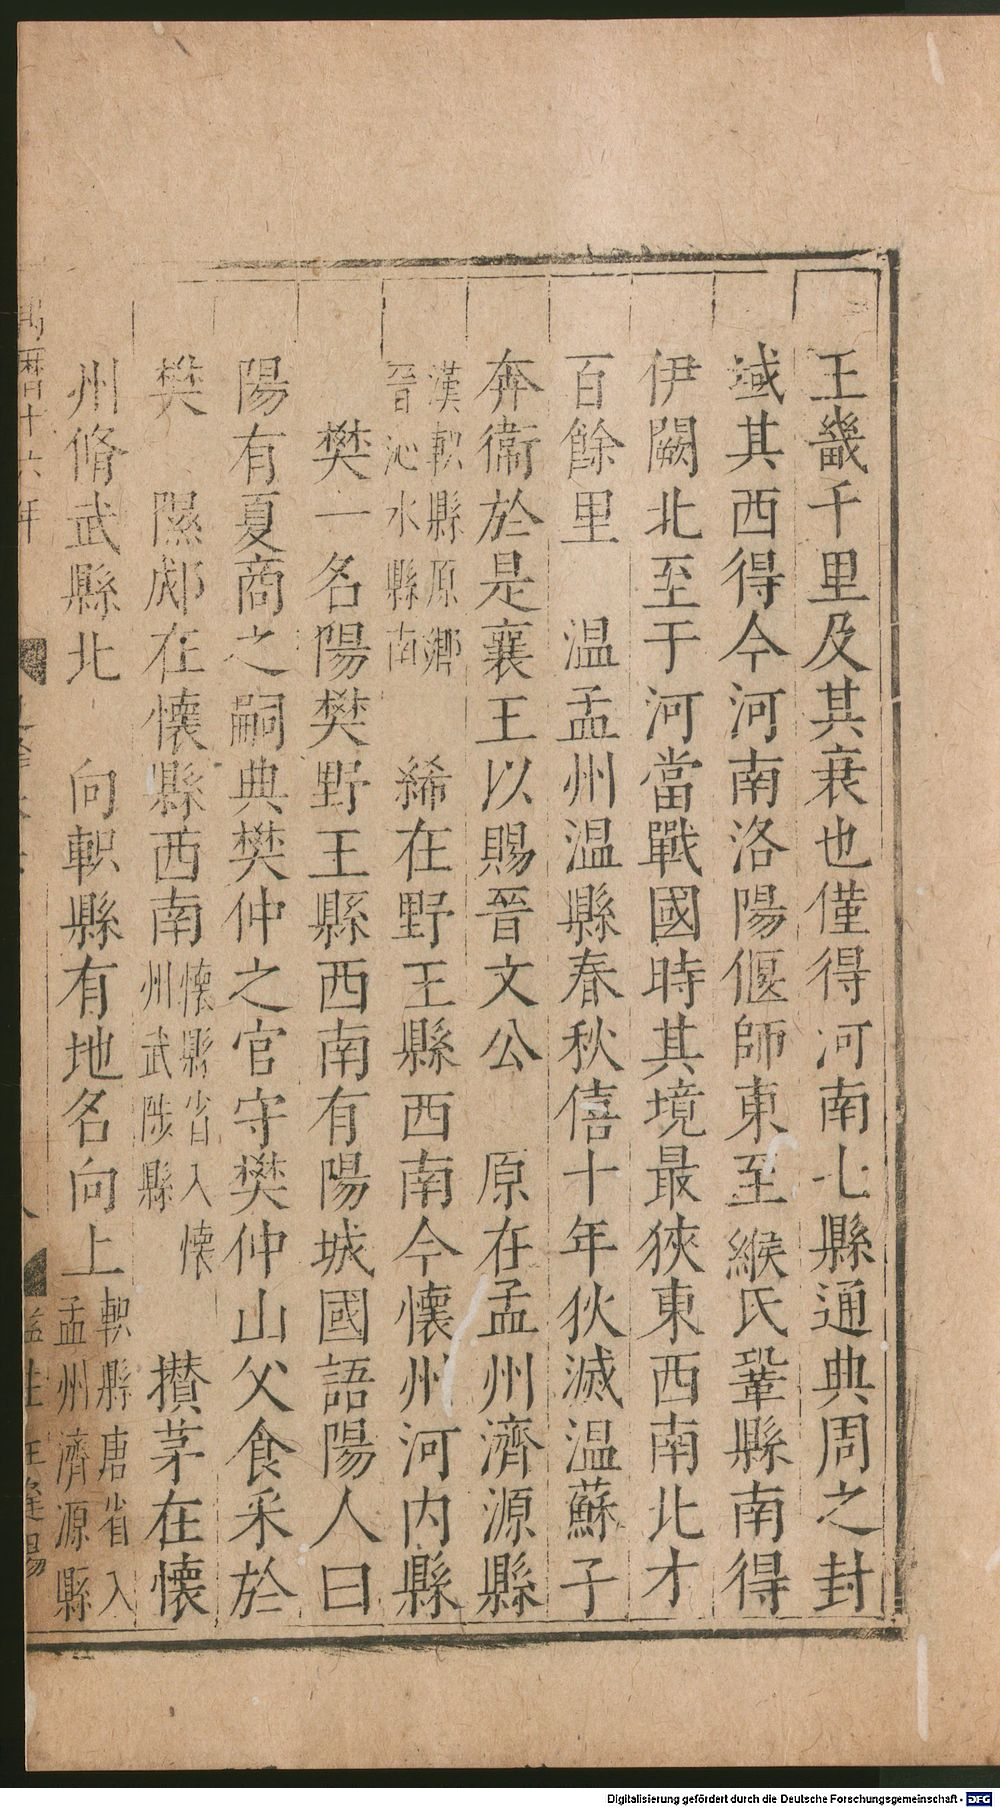 王畿千里及其衰也僅得河南七縣通典周之封
域其西得今河南洛陽偃師東至緱氏鞏縣南得
伊闕北至于河當戰國時其境最狹東西南北才
百餘里　温孟州温縣春秋僖十年狄滅温蘇子
奔衛於是襄王以賜晉文公　原在孟州濟源縣
漢軹縣原鄉
晉沁水縣南
絺在野王縣西南今懷州河内縣
樊一名陽樊野王縣西南有陽城國語陽人曰
陽有夏商之嗣典樊仲之官守樊仲山父食采於
樊　隰郕在懷縣西南
懷縣省入懷
州武陟縣
攅茅在懷
州脩武縣北　向軹縣有地名向上
軹縣唐省入
孟州濟源縣
萬曆十六年
Digitalisierung gefördert durch die Deutsche Forschungsgemeinschaft - DFG